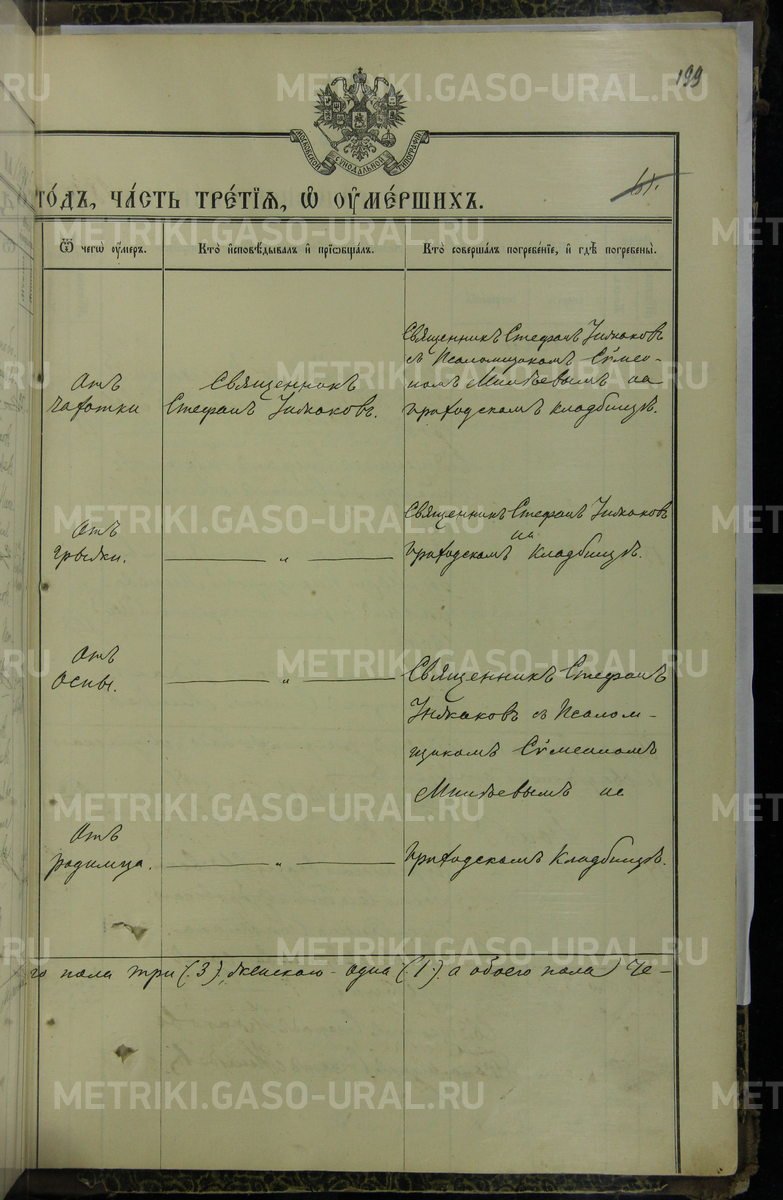 199
МОСКОВСКОЙ СѴНОДАЛЬНОЙ ТИПОГРАФІИ
го́дъ, ча́сть тре́тїѧ, ѡ҆ оу҆ме́ршихъ.
Ѿ чегѡ̀ оу҆́меръ.
Кто̀ и҆сповѣ́дывалъ и҆ прїѡбща́лъ.
Кто̀ соверша́лъ погребе́нїе, и҆ гдѣ̀ погребены̀.
Отъ
чахотки
Священникъ
Стефанъ
Священникъ Стефанъ
съ Псаломщикомъ Сѵмео-
номъ на
приходскомъ кладбищѣ.
Отъ
грыжи.
— „ —
Священникъ Стефанъ
на
приходскомъ кладбищѣ.
Отъ
оспы.
— „ —
Священникъ Стефанъ
съ Псалом-
щикомъ Сѵмеономъ
на
Отъ
родимца.
— „ —
приходскомъ кладбищѣ.
го пола три (3) женскаго одна (1) а обоего пола че-
METRIKI.GASO-URAL.RU